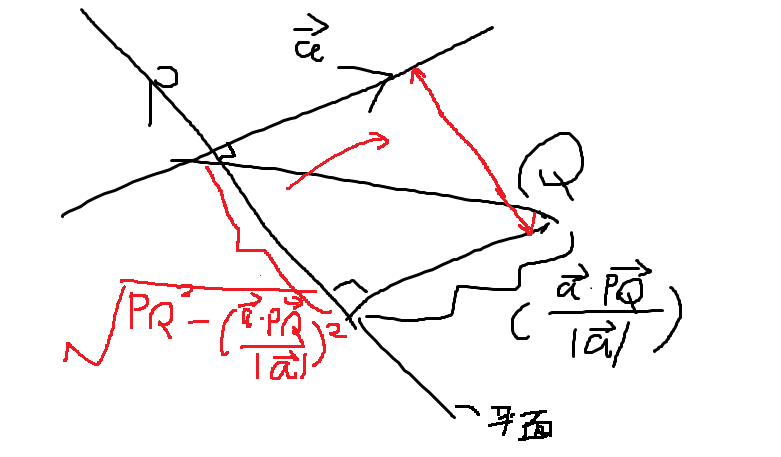 a⃗
P
Q
√(PQ² − (a⃗·PQ⃗/|a⃗|)²)
(a⃗·PQ⃗/|a⃗|)
平面